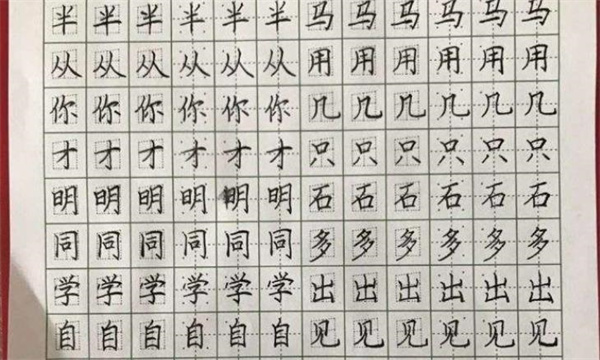 半半半半半半马马马马马马
从从从从从从用用用用用用
你你你你你你几几几几几几
才才才才才才只只只只只只
明明明明明明石石石石石石
同同同同同同多多多多多多
学学学学学学出出出出出出
自自自自自自见见见见见见